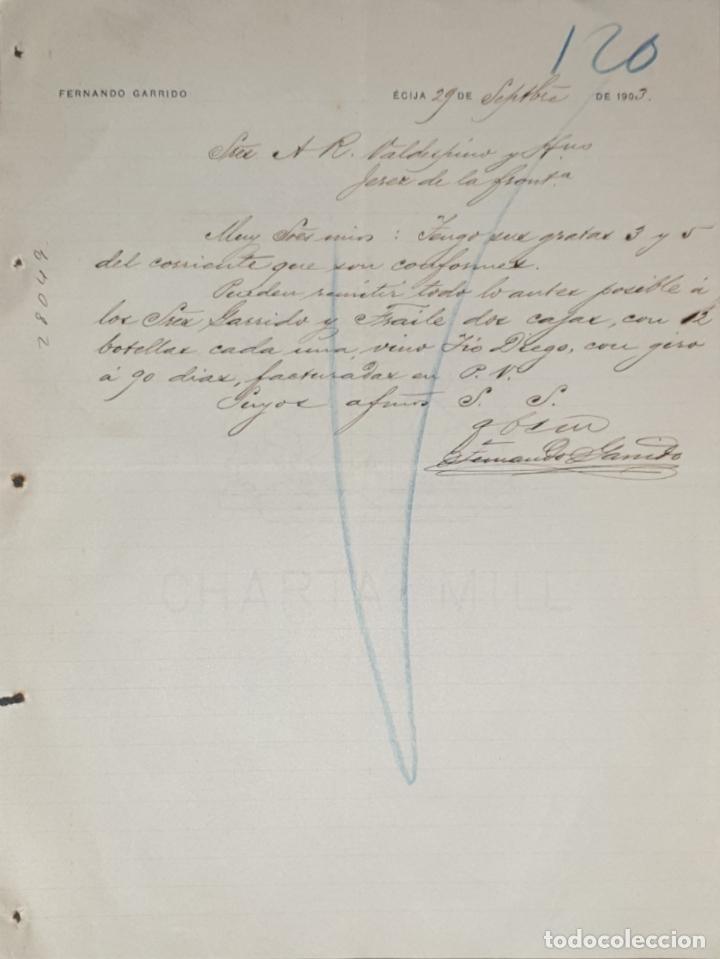 120
FERNANDO GARRIDO
ÉCIJA 29 DE Septbre DE 1903.
Sres A R. Valdespino y Hno
Jerez de la Front.a
Muy Sres mios: Tengo sus gratas 3 y 5
del corriente que son conformes.
Pueden remitir todo lo antes posible á
los Sres Garrido y Fraile dos cajas, con 12
botellas cada una, vino Tio Diego, con giro
á 90 dias, facturadas en P. V.
Suyos afmos S. S.
q b s m
Fernando Garrido
28049
CHARTA MILL
todocoleccion.net